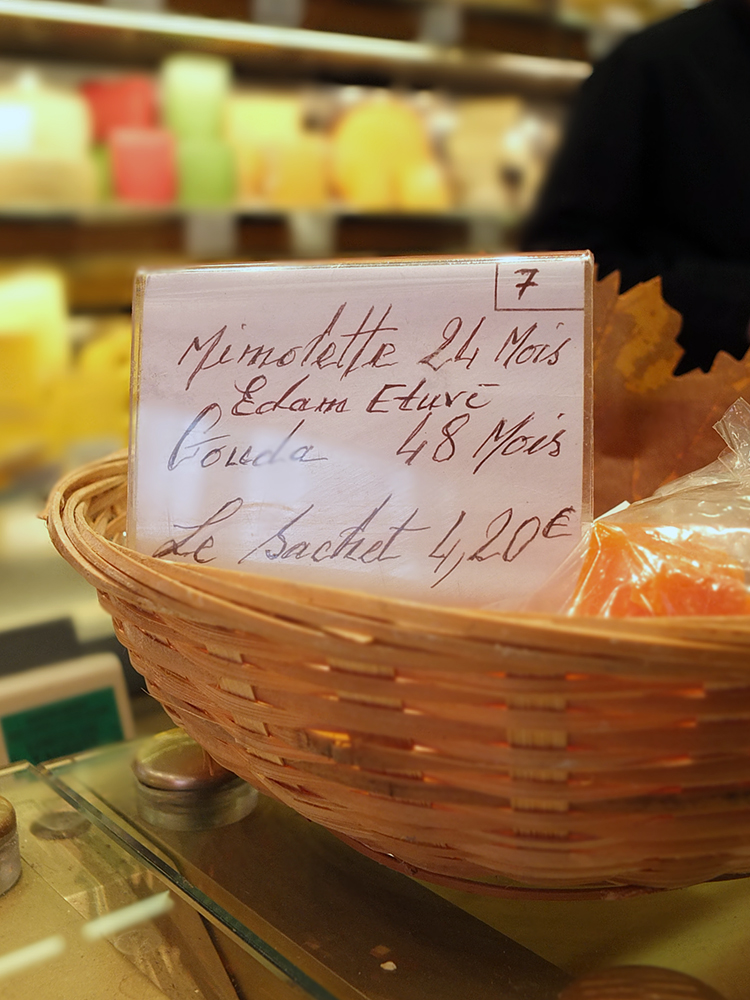 7
Mimolette 24 Mois
Edam Etuvé
Gouda 48 Mois
Le Sachet 4,20€